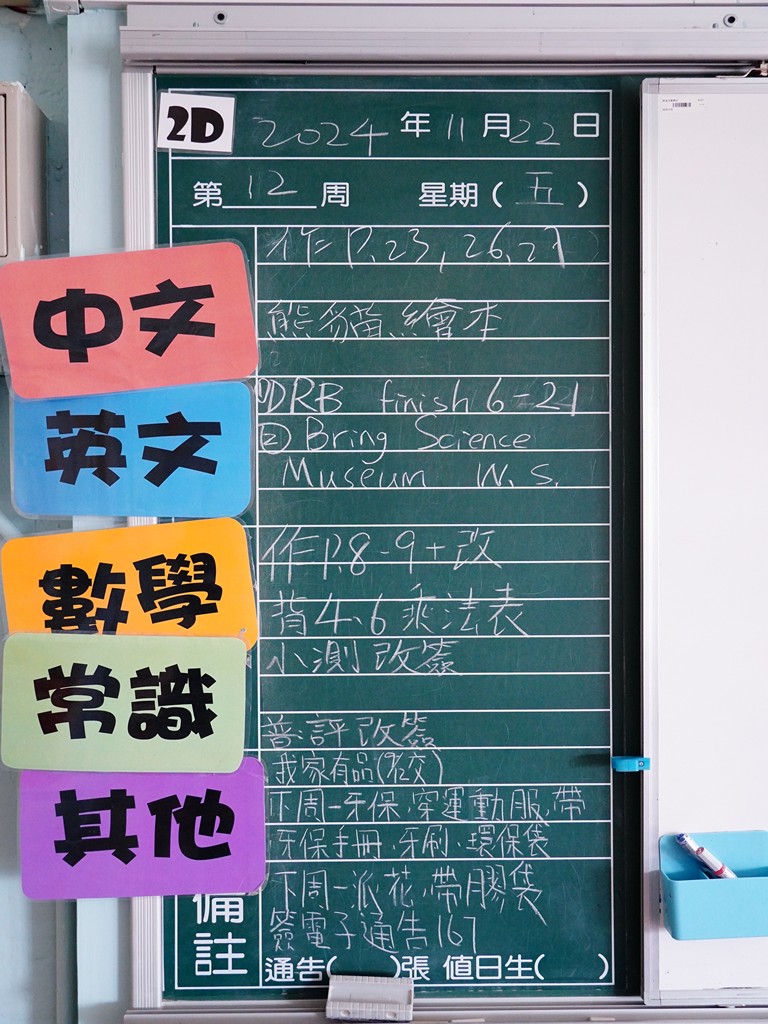 2D 2024年11月22日
第12周 星期(五)
中文
作P.23, 26, 27
熊貓繪本
英文
①DRB finish 6-21
②Bring Science
Museum W.S.
數學
作P.8-9+改
背4、6乘法表
小測改簽
常識
其他
普:評改簽
我家有品(欠交)
下周一牙保,穿運動服、帶
牙保手冊、牙刷、環保袋
備註
下周一派花,帶膠袋
簽電子通告167
通告( )張 值日生( )